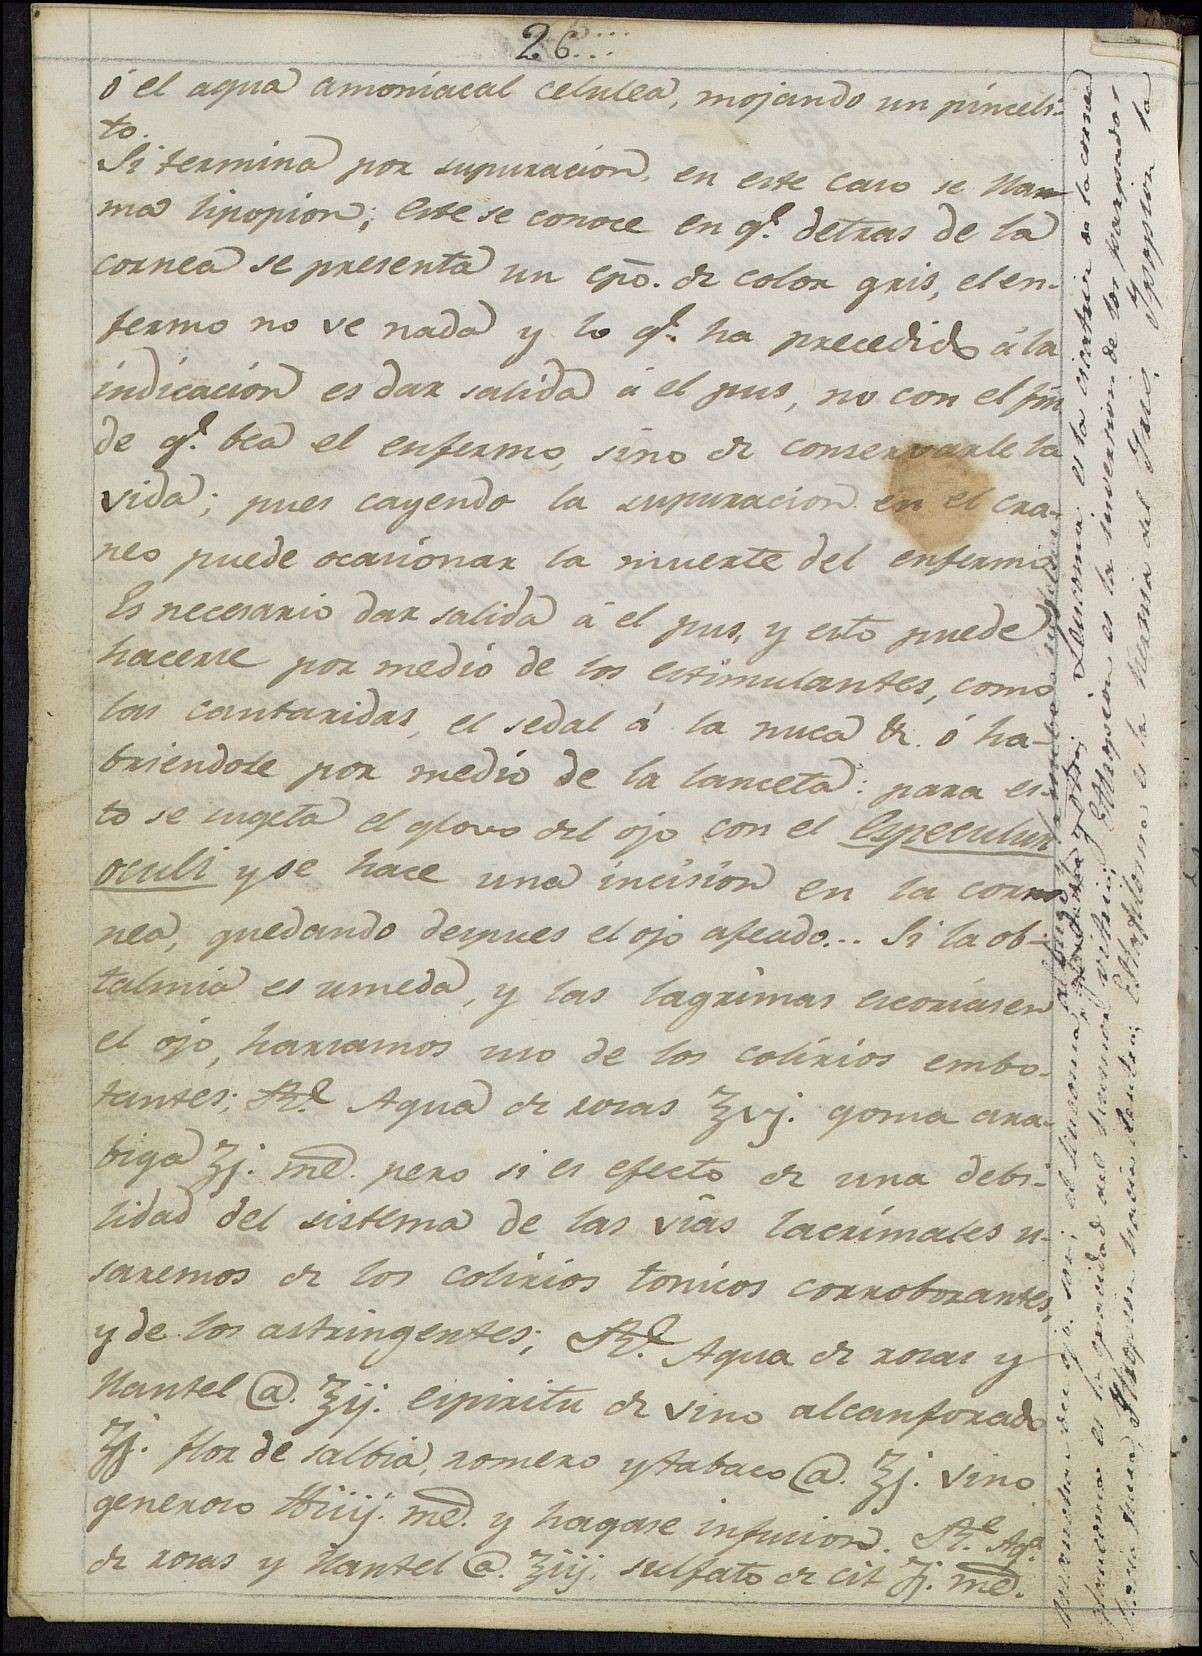 26...
ó el agua amoniacal celulea, mojando un pinceli-
to.
Si termina por supuracion, en este caso se llam
ma hipopion; este se conoce en q.e detras de la
cornea se presenta un cpõ. de color gris, el en-
fermo no ve nada y lo q.e ha precedido á la
indicacion es dar salida á el pus, no con el fin
de q.e bea el enfermo, sino de conservarle la
vida; pues cayendo la supuracion en el cra-
neo puede ocasionar la muerte del enfermo
Es necesario dar salida á el pus, y esto puede
hacerse por medio de los estimulantes, como
las cantaridas, el sedal á la nuca &. ó ha-
briendole por medio de la lanceta: para es-
to se sugeta el glovo del ojo con el Especulun
oculi y se hace una incision en la corn
nea, quedando despues el ojo afeado... Si la ob-
talmia es umeda, y las lagrimas escoriasen
el ojo, hariamos uso de los colirios embo-
tantes; R.e Agua de rosas ℥vj. goma ara-
biga ℥j. me. pero si es efecto de una debi-
lidad del sistema de las vias lacrimales u-
saremos de los colirios tonicos corroborantes,
y de los astringentes; R.e Agua de rosas y
llantel @. ℥ij. espiritu de vino alcanforado
ʒj. flor de salbia, romero y tabaco @. ℥j. vino
generoso ℔iiij. me. y hagase infusion. R.e Ag.a
de rosas y llantel @. ℥iij. sulfato de cit ʒj. me.
ojo, son; el leucoma, albugo y
Leucoma es la cicatriz de la cornea
Glaucoma es la opacidad del humor vitrio; Ectropion es la inversion de los parpados
hacia fuera, Entropion hacia dentro; Estafiloma es la hernia del Yris, Ypopion la